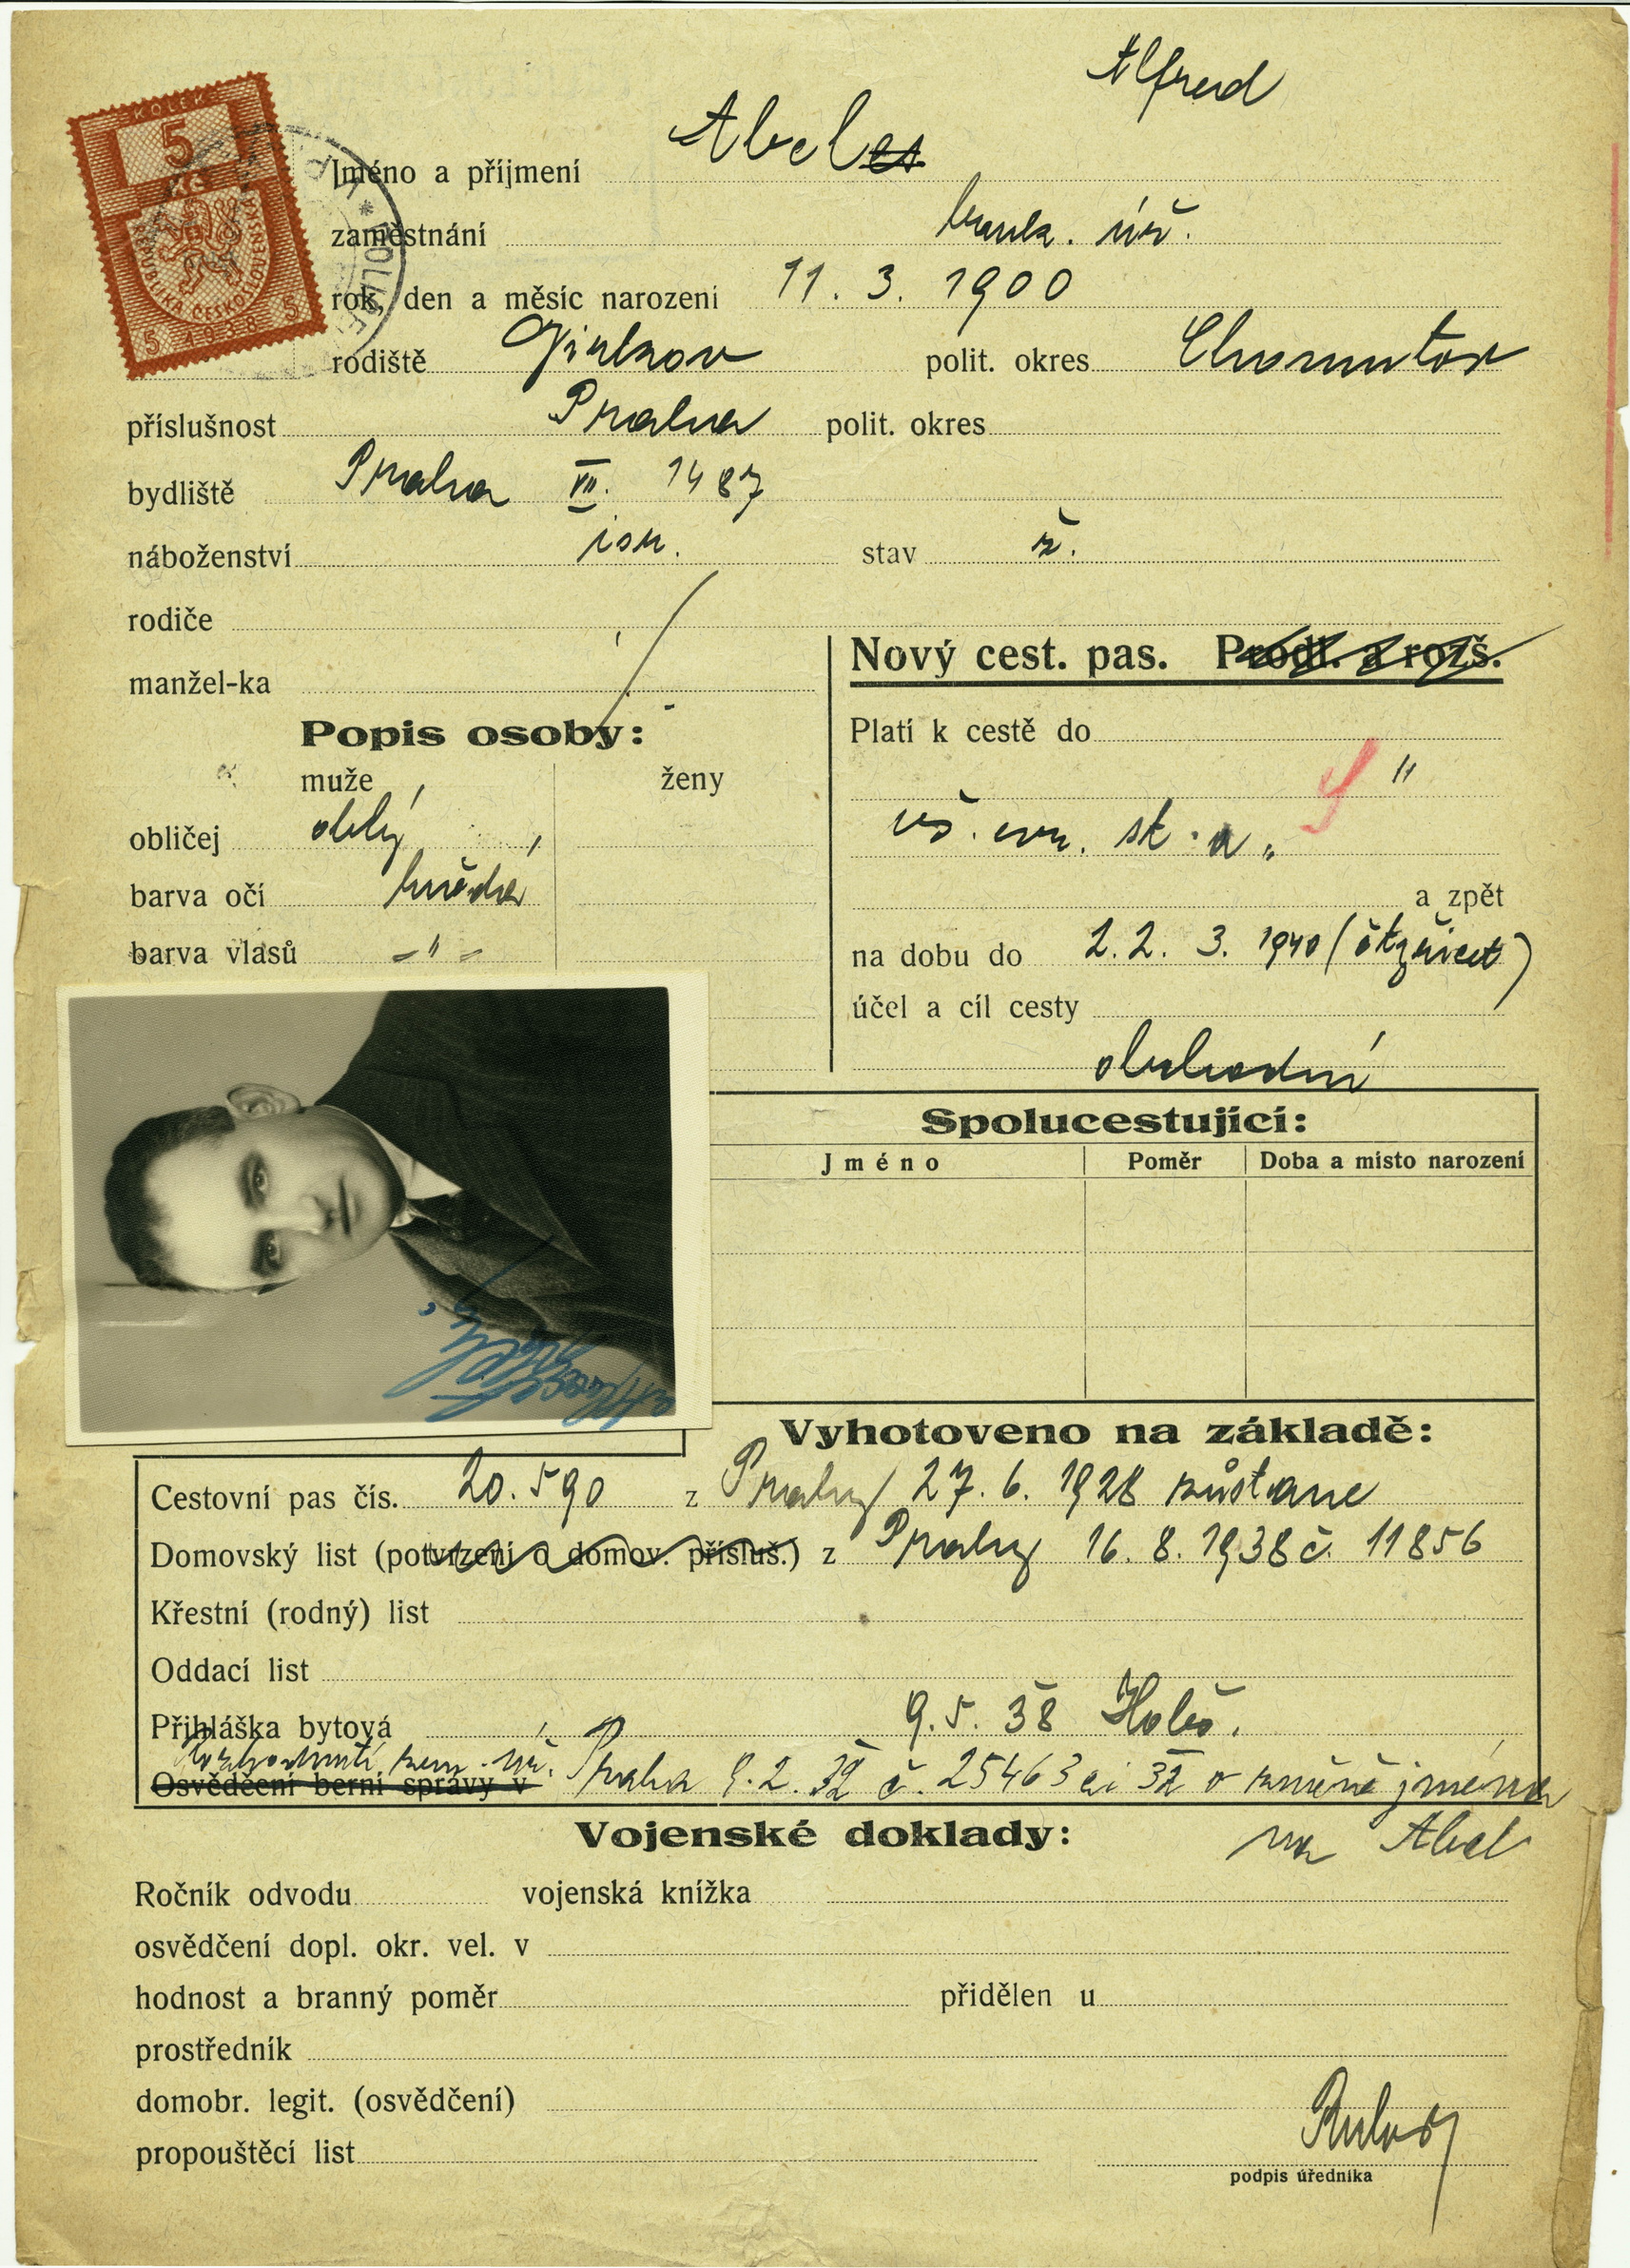 Alfred
KOLEK
5
Kč
REPUBLIKA ČESKOSLOVENSKÁ
5 1938 5
Jméno a příjmení Abeles
zaměstnání bank. úř.
rok, den a měsíc narození 11. 3. 1900
rodiště polit. okres Chomutov
příslušnost Praha polit. okres
bydliště Praha VII. 1487
náboženství isr. stav ž.
rodiče
manžel-ka
Nový cest. pas. Prodl. a rozš.
Popis osoby:
muže ženy
obličej oblý
barva očí hnědá
barva vlasů -"-
Platí k cestě do
"
vš. evr. st. a
a zpět
na dobu do 22. 3. 1940 (čtyřicet)
účel a cíl cesty
obchodní
Spolucestující:
Jméno Poměr Doba a místo narození
Vyhotoveno na základě:
Cestovní pas čís. 20.590 z Prahy 27. 6. 1928 zůstane
Domovský list (potvrzení o domov. přísluš.) z Prahy 16. 8. 1938 č. 11856
Křestní (rodný) list
Oddací list
Přihláška bytová 9. 5. 38 Holeš.
Rozhodnutí zem. úř. Praha 9. 2. 32 č. 25463 ai 32 o změně jména
Osvědčení berní správy v
na Abel
Vojenské doklady:
Ročník odvodu vojenská knížka
osvědčení dopl. okr. vel. v
hodnost a branný poměr přidělen u
prostředník
domobr. legit. (osvědčení)
propouštěcí list
podpis úředníka